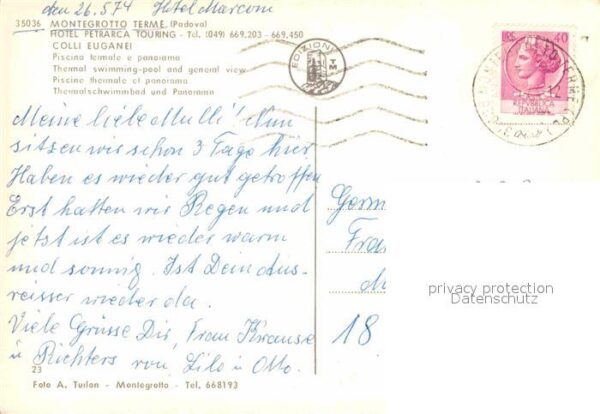 den 26.5.74 Hotel Marconi
35036 MONTEGROTTO TERME (Padova)
HOTEL PETRARCA TOURING - Tel. (049) 669.203 - 669.450
COLLI EUGANEI
Piscina termale e panorama
Thermal swimming-pool and general view
Piscine thermale et panorama
Thermalschwimmbad und Panorama
EDIZIONI
TM
LIRE 40
REPUBBLICA
ITALIANA
Meine liebe Mulli! Nun
sitzen wir schon 3 Tage hier
Haben es wieder gut getroffen
Erst hatten wir Regen und
jetzt ist es wieder warm
und sonnig. Ist Dein Aus-
reisser wieder da.
Viele Grüsse Dir, Frau Krause
u Richters von Lilo u Otto.
Germ
Fra
18
privacy protection
Datenschutz
23
Foto A. Turlon - Montegrotto - Tel. 668193